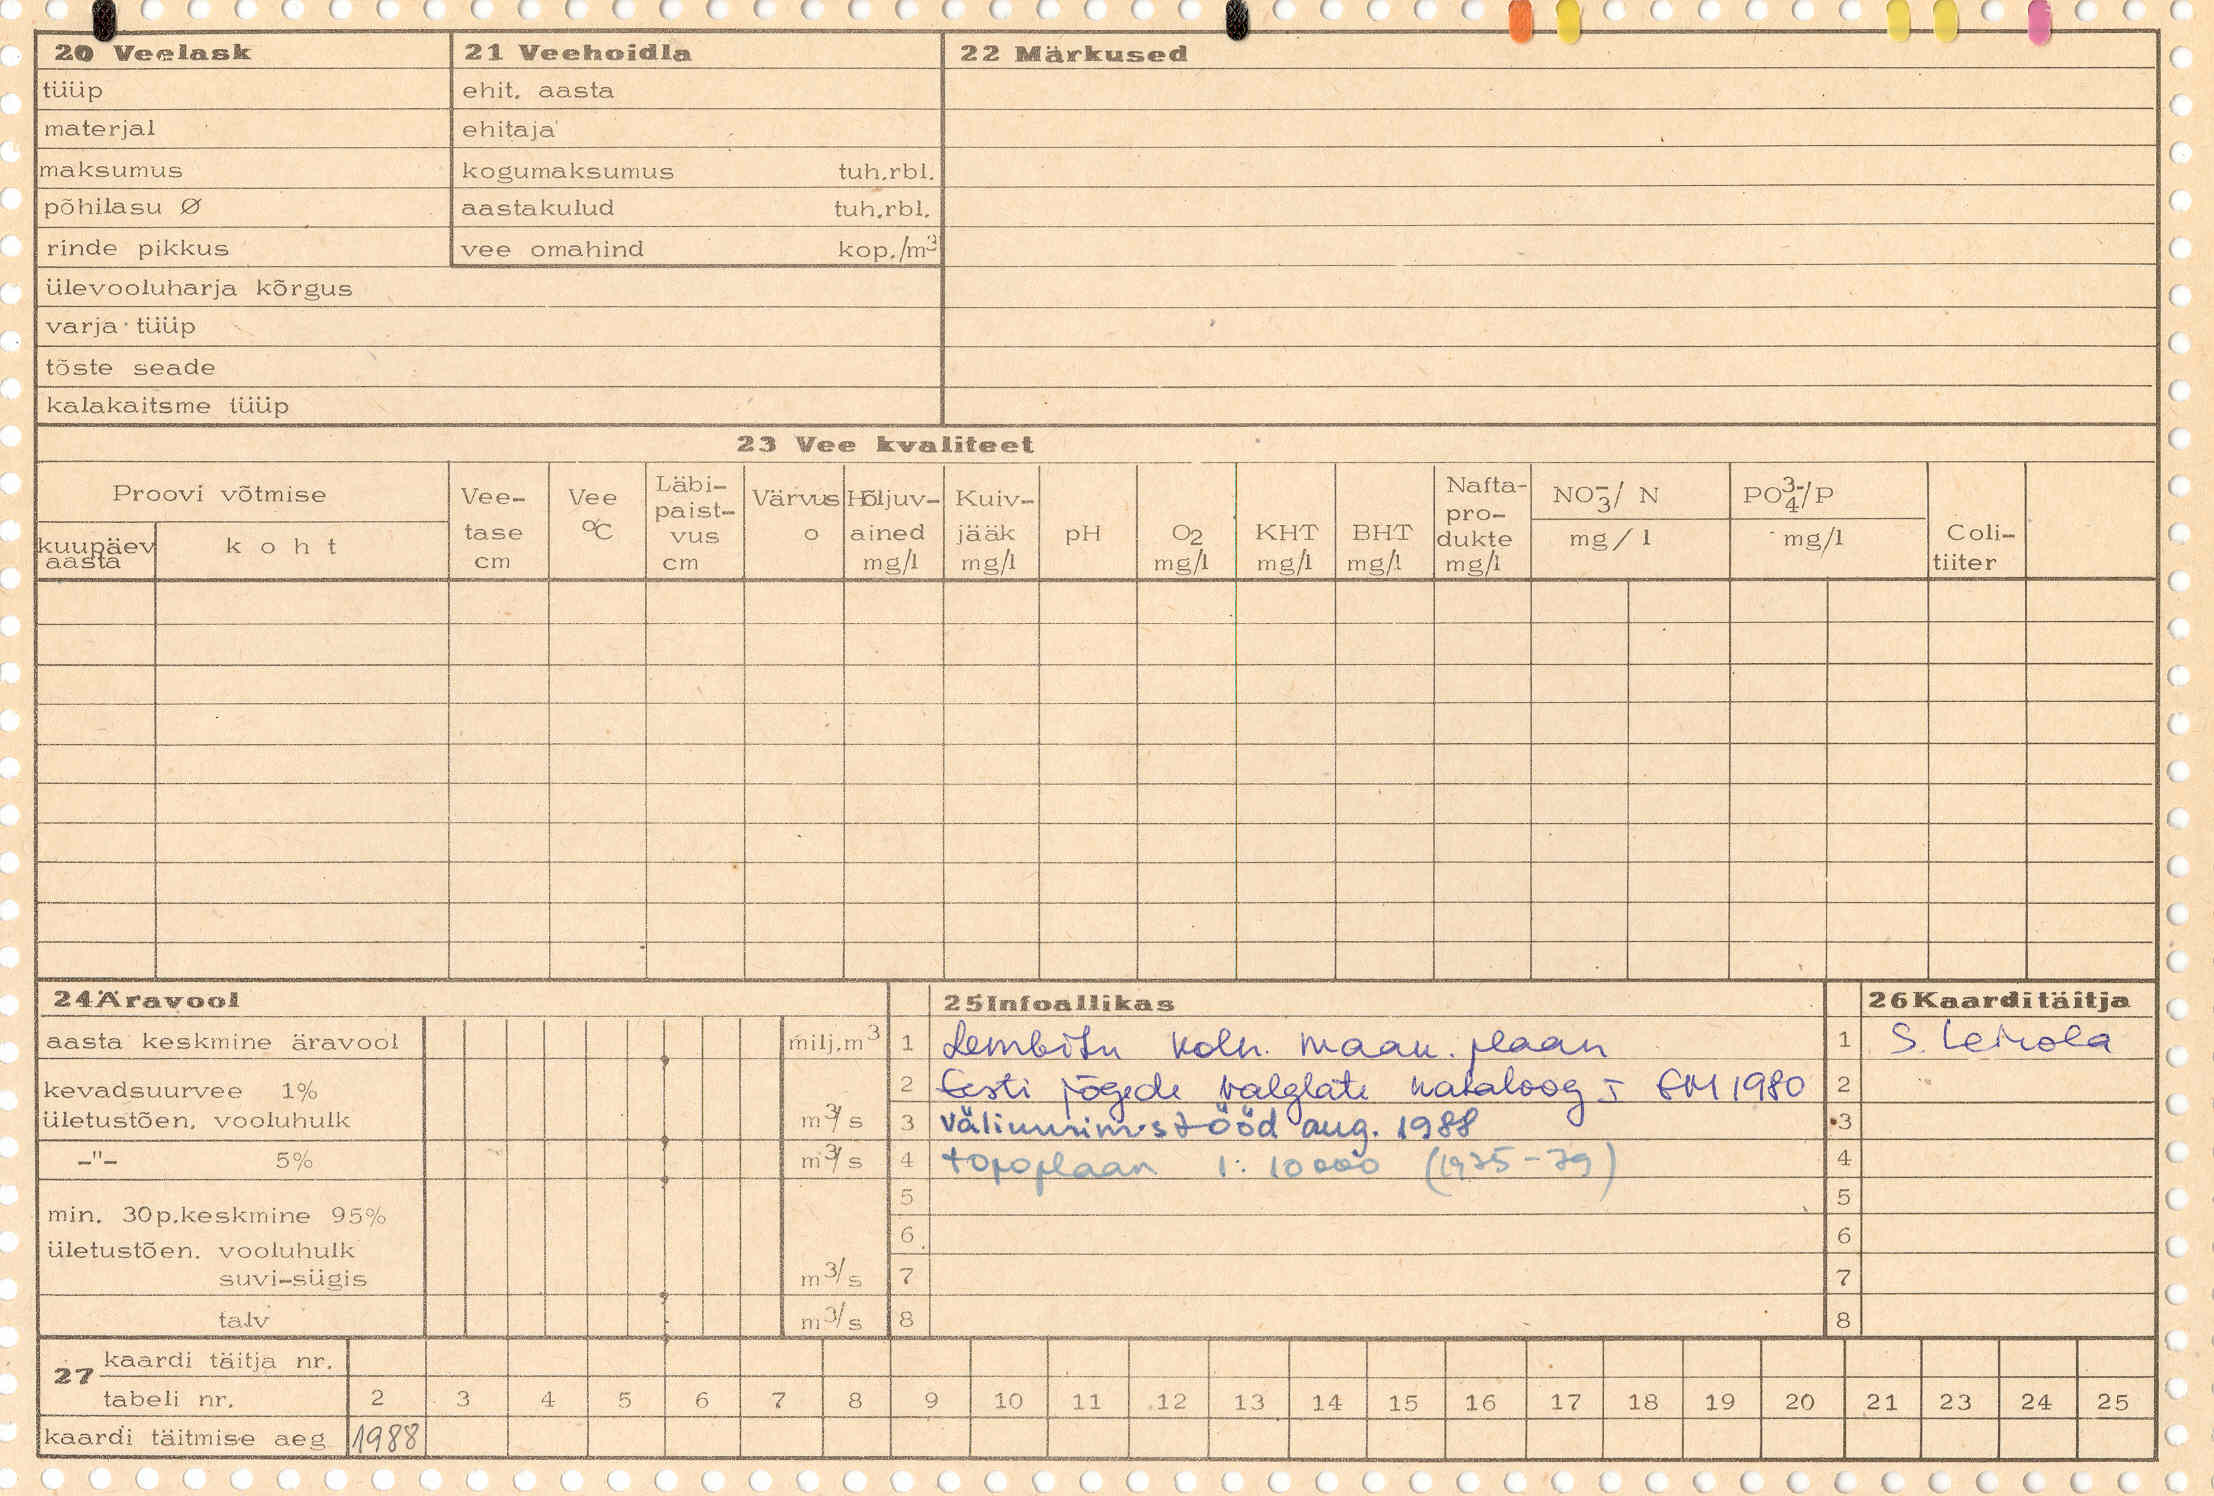 20 Veelask
tüüp
materjal
maksumus
põhilasu Ø
rinde pikkus
ülevooluharja kõrgus
varja tüüp
tõste seade
kalakaitsme tüüp
21 Veehoidla
ehit. aasta
ehitaja
kogumaksumus tuh.rbl.
aastakulud tuh.rbl.
vee omahind kop./m³
22 Märkused
23 Vee kvaliteet
Proovi võtmise
kuupäev
aasta
koht
Vee-
tase
cm
Vee
°C
Läbi-
paist-
vus
cm
Värvus
o
Hõljuv-
ained
mg/l
Kuiv-
jääk
mg/l
pH
O2
mg/l
KHT
mg/l
BHT
mg/l
Nafta-
pro-
dukte
mg/l
NO₃⁻/ N
mg/l
PO₄³⁻/P
mg/l
Coli-
tiiter
24 Äravool
aasta keskmine äravool milj.m³
kevadsuurvee 1%
ületustõen. vooluhulk m³/s
-"- 5% m³/s
min. 30p.keskmine 95%
ületustõen. vooluhulk
suvi-sügis m³/s
talv m³/s
25 Infoallikas
1 Lembitu kolh. maau. plaan
2 Eesti jõgede valglate kataloog I EM 1980
3 väliuurimistööd aug. 1988
4 topoplaan 1:10000 (1975-79)
5
6
7
8
26 Kaarditäitja
1 S.
2
3
4
5
6
7
8
27 kaardi täitja nr.
tabeli nr. 2 3 4 5 6 7 8 9 10 11 12 13 14 15 16 17 18 19 20 21 23 24 25
kaardi täitmise aeg 1988